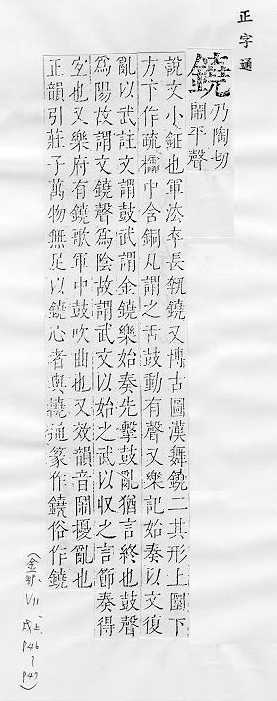 正字通
鐃
乃陶切
鬧平聲
說文小鉦也軍法卒長執鐃又博古圖漢舞鐃二其形上圓下
方下作疏櫺中含銅丸謂之舌鼓動有聲又樂記始奏以文復
亂以武註文謂鼓武謂金鐃樂始奏先擊鼓亂猶言終也鼓聲
為陽故謂文鐃聲為陰故謂武文以始之武以收之言節奏得
宜也又樂府有鐃歌軍中鼓吹曲也又效韻音鬧擾亂也
正韻引莊子萬物無足以鐃心者與撓通篆作鐃俗作鐃
(金部、VII
戌上、
P46~
P47)